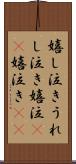 嬉し泣きうれ
し泣き嬉泣
嬉泣き